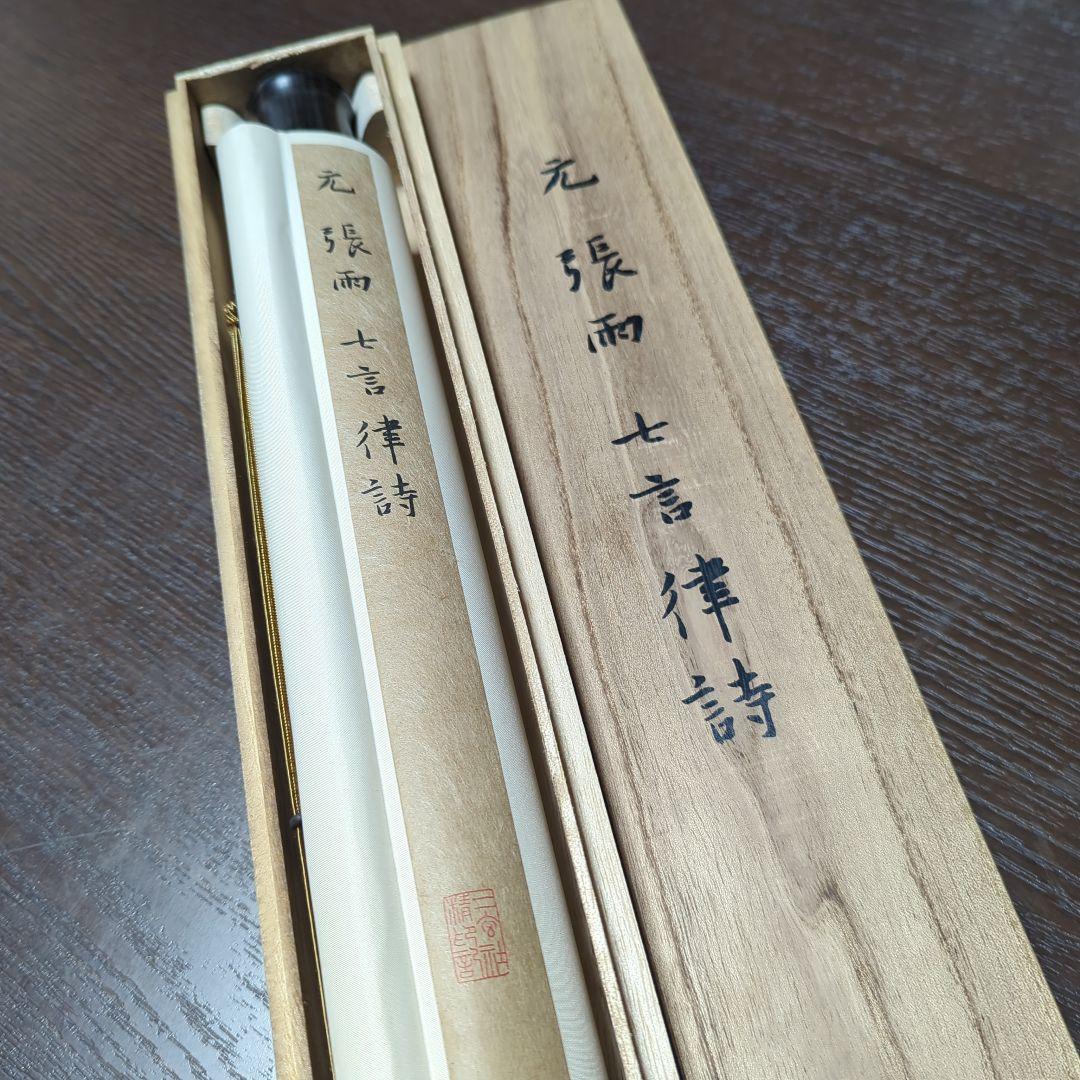 元 張雨 七言律詩
元 張雨 七言律詩